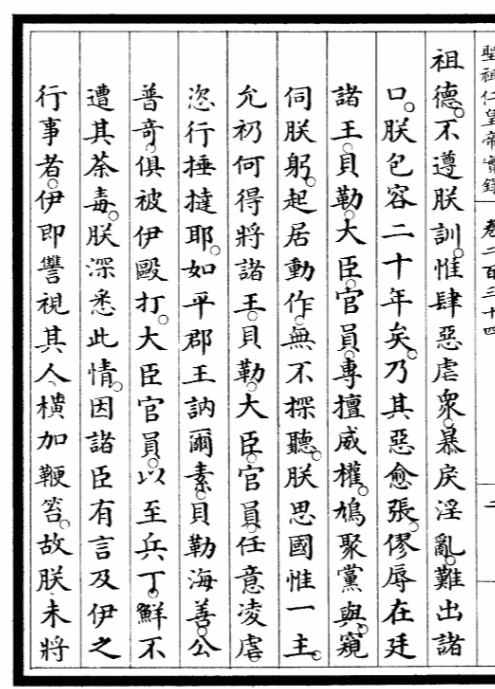 聖祖仁皇帝實錄 卷二百三十四 二
祖德。不遵朕訓。惟肆惡虐衆。暴戾淫亂。難出諸
口。朕包容二十年矣。乃其惡愈張。僇辱在廷
諸王。貝勒。大臣。官員。專擅威權。鳩聚黨與。窺
伺朕躬。起居動作。無不探聽。朕思國惟一主。
允礽何得將諸王。貝勒。大臣。官員。任意凌虐
恣行捶撻耶。如平郡王訥爾素。貝勒海善。公
普竒。俱被伊毆打。大臣官員。以至兵丁。鮮不
遭其荼毒。朕深悉此情。因諸臣有言及伊之
行事者。伊即讐視其人。橫加鞭笞。故朕未將